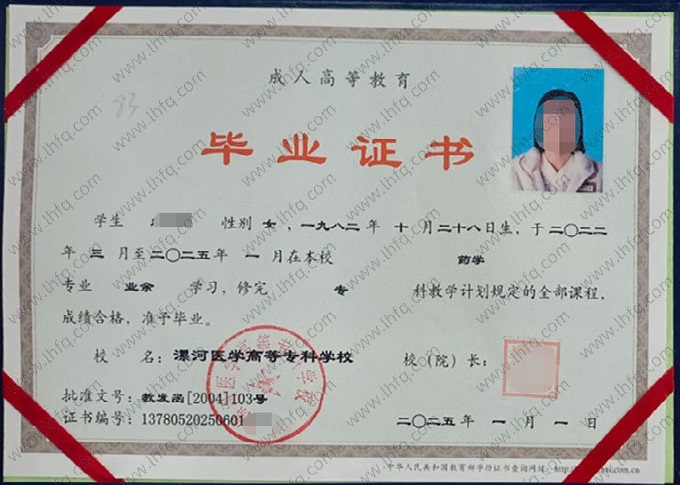 成人高等教育
毕业证书
学生 性别 女，一九八二年 十 月二十八日生，于二〇二二
年 三 月至二〇二五年 一 月在本校 药学
专业 业余 学习，修完 专 科教学计划规定的全部课程，
成绩合格，准予毕业。
校 名：漯河医学高等专科学校 校（院）长：
批准文号：教发函[2004]103号
证书编号：13780520250601
二〇二五年 一 月 一 日
中华人民共和国教育部学历证书查询网址：
www.lhfq.com